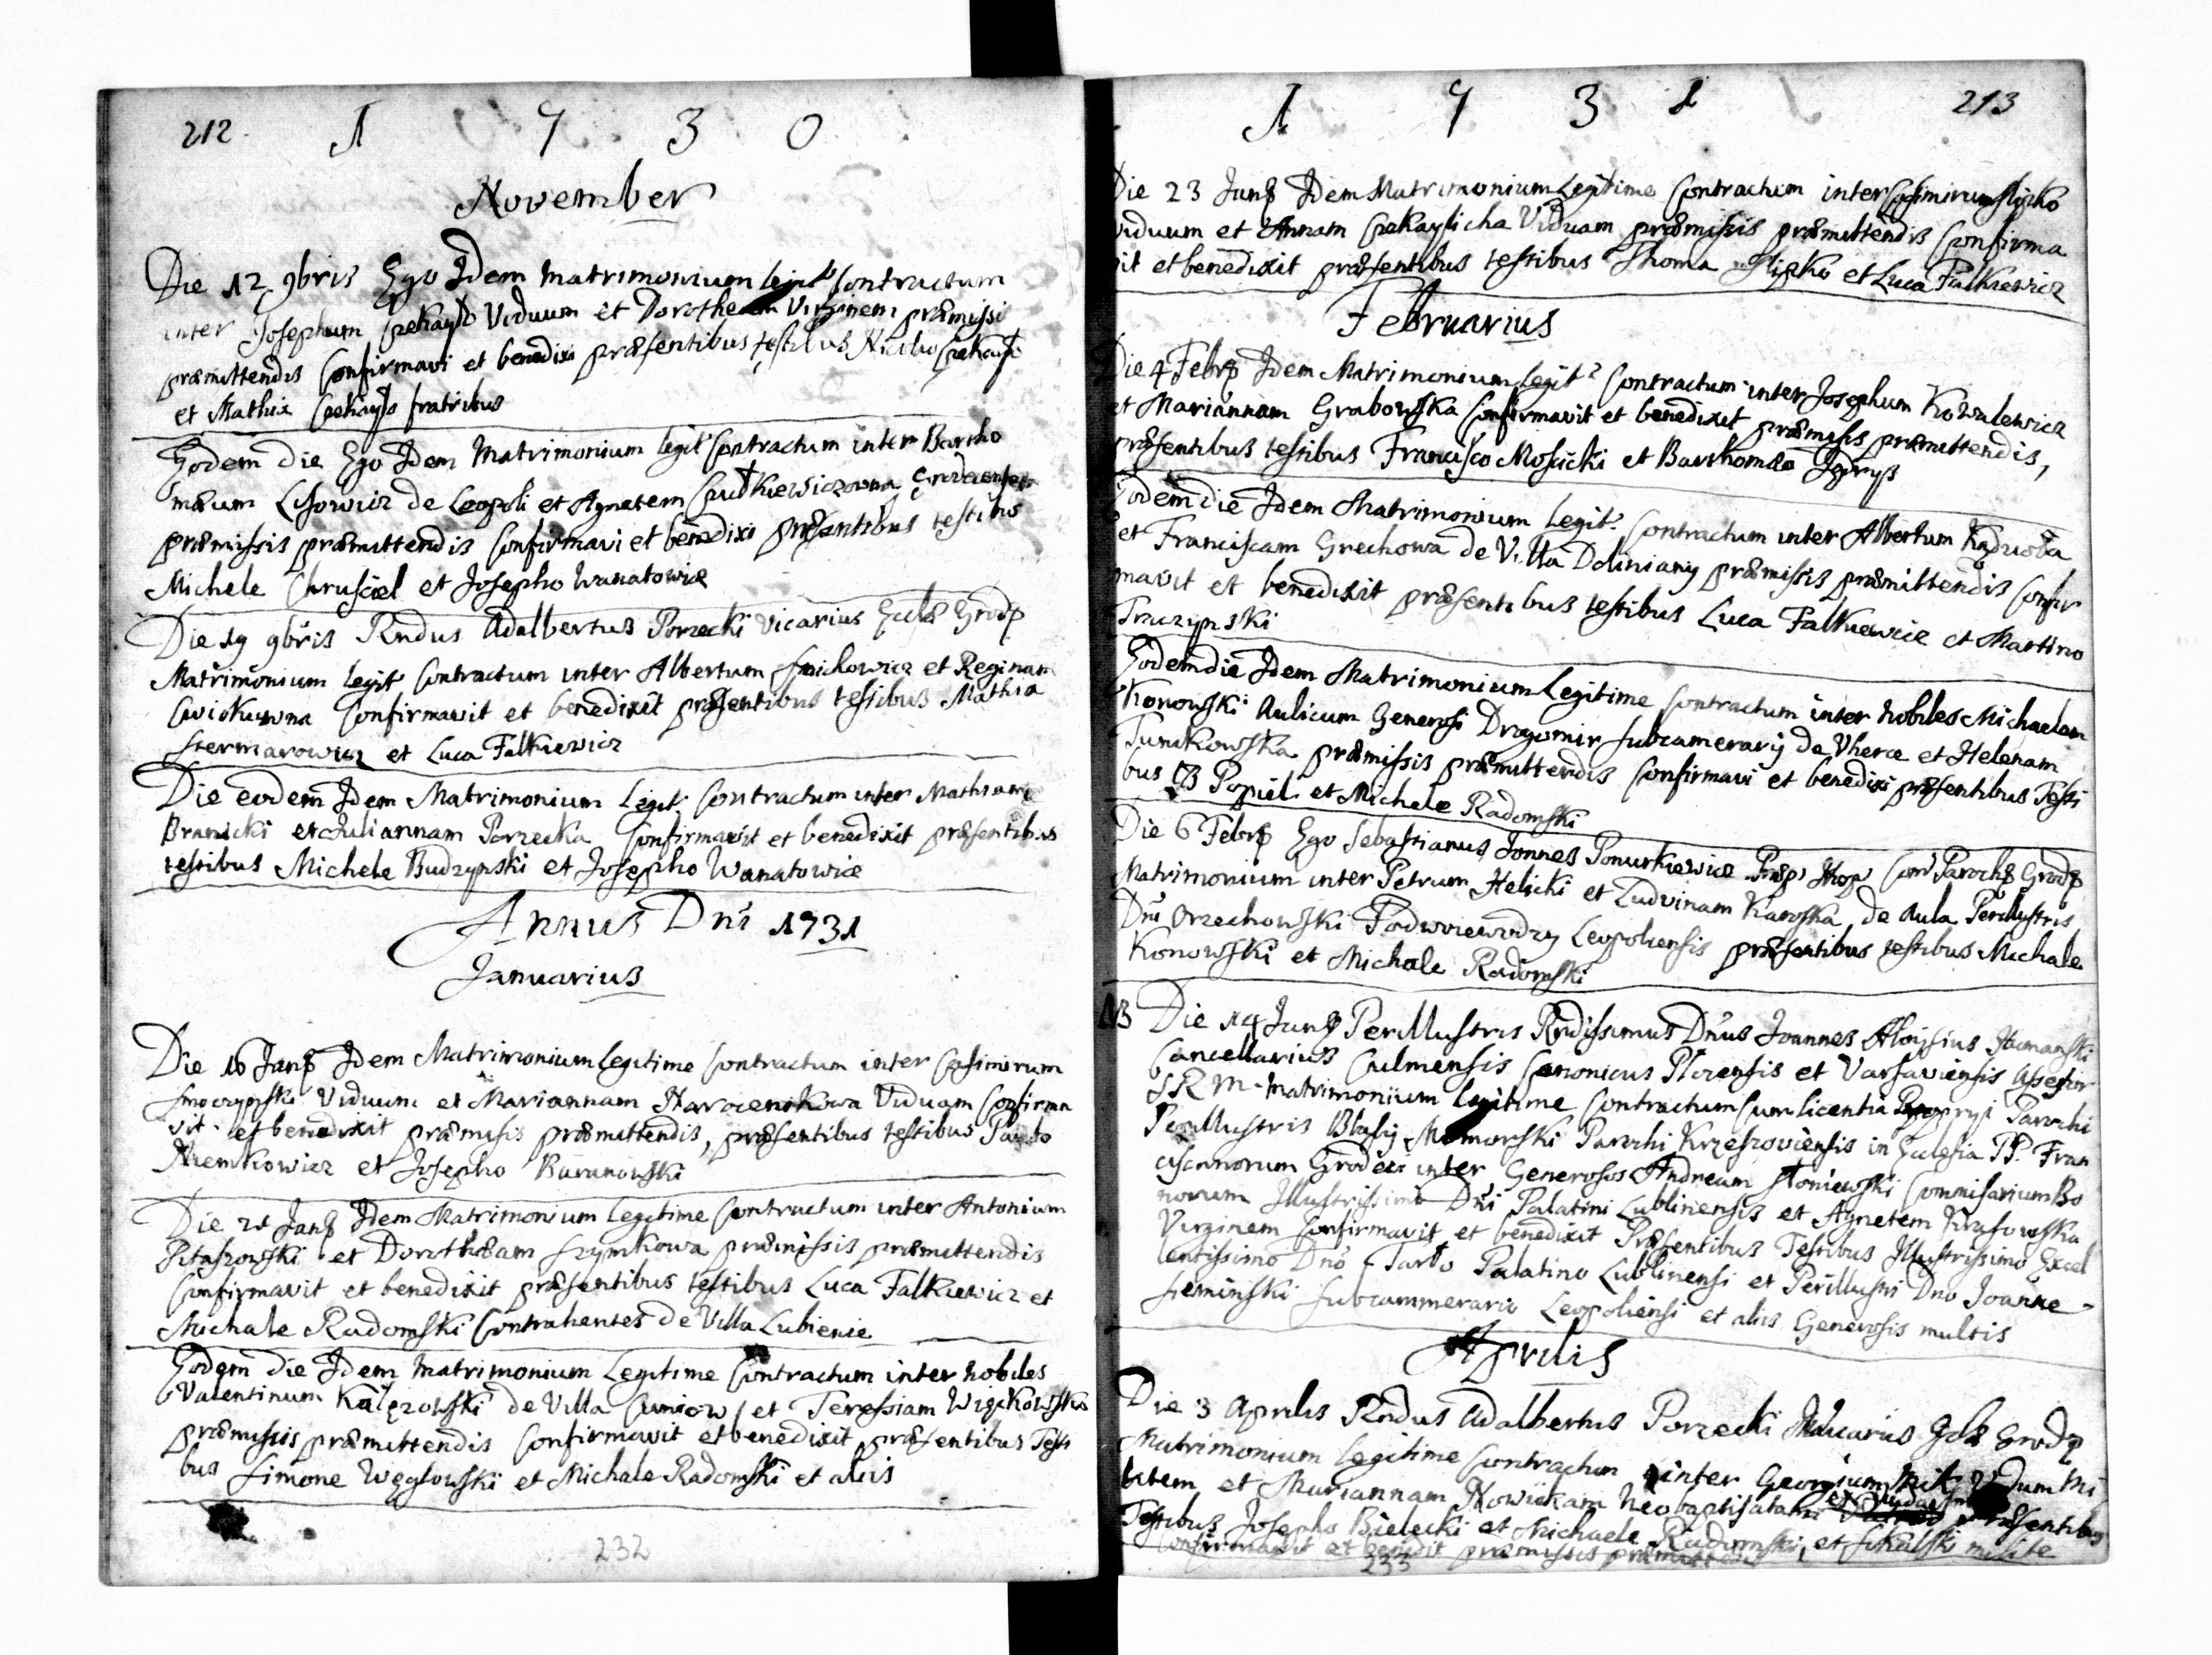 212 1 7 3 0
November
Die 12 9bris Ego Idem Matrimonium legit Contractum
inter Josephum Czekaylo Viduum et Dorotheam Virginem præmissi
præmittendis Confirmavi et benedixi præsentibus testibus
et Mathia Czekaylo fratribus
Eodem die Ego Idem Matrimonium legit Contractum inter Bartho
mæum Lisowicz de Leopoli et Agnetem
præmissis præmittendis Confirmavi et benedixi præsentibus testibus
Michele Chrusciel et Josepho Wanatowicz
Die 19 9bris Rndus Adalbertus Porzecki Vicarius Eccls Grod
Matrimonium legit Contractum inter Albertum et Reginam
Confirmavit et benedixit præsentibus testibus Mathia
et Luca Falkiewicz
Die eodem Idem Matrimonium Legit Contractum inter Mathiam
Branicki et Juliannam Porzecka Confirmavit et benedixit præsentibus
testibus Michele Budzynski et Josepho Wanatowicz
Annus Dni 1731
Januarius
Die 16 Idem Matrimonium legitime Contractum inter Casimirum
Smoczynski Viduum et Mariannam Viduam Confirma
vit et benedixit præmissis præmittendis, præsentibus testibus Paulo
Niemkowicz et Josepho Baranowski
Die 21 Idem Matrimonium Legitime Contractum inter Antonium
Pitaszowski et Dorothæam Szymkowa præmissis præmittendis
Confirmavit et benedixit præsentibus testibus Luca Falkiewicz et
Michale Radomski Contrahentes de Villa Lubienie
Eodem die Idem Matrimonium Legitime Contractum inter nobiles
Valentinum de Villa Cuniow et Teressiam
præmissis præmittendis Confirmavit et benedixit præsentibus Testi
bus Simone Węglowski et Michale Radomski et aliis
232
1 7 3 1 213
Die 23 Idem Matrimonium Legitime Contractum inter Casimirum Slipko
viduum et Annam Viduam præmissis præmittendis Confirma
vit et benedixit præsentibus testibus Thoma Slipko et Luca Falkiewicz
Februarius
Die 4 Idem Matrimonium legit Contractum inter Josephum Kowalewicz
et Mariannam Grabowska Confirmavit et benedixit præmissis præmittendis,
præsentibus testibus Francisco Moscicki et Bartholomæo
Eodem die Idem Matrimonium legit. Contractum inter Albertum
et Franciscam Grechowa de Villa Doliniany præmissis præmittendis Confir
mavit et benedixit præsentibus testibus Luca Falkiewicz et Martino
Truczynski
Eodem die Idem Matrimonium Legitime Contractum inter nobiles Michaelem
Konowski Aulicum Generosi Drogomir subcamerarij de Vherce et Helenam
præmissis præmittendis Confirmavi et benedixi præsentibus Testi
bus Popiel et Michele Radomski
Die 6 Ego Sebastianus Ponurkiewicz
Matrimonium inter Petrum Helicki et Ludvinam Karska de Aula Perillustris
Dni Orzechowski Podwoiewodzy Leopoliensis præsentibus testibus Michale
Konowski et Michale Radomski
NB Die 14 Perillustris Rndissimus Dnus Joannes Aloysius
Cancellarius Culmensis Canonicus Plocensis et Varsaviensis Assessor
SRM Matrimonium legitime Contractum cum licentia Proprij Parochi
Perillustris Blasij Parochi Krzeszoviensis in Ecclesia PP Fran
ciscanorum Grodeci inter Generosos Andream Słoniewski Commisarium Bo
norum Illustrissimi Dni Palatini Lublinensis et Agnetem Krasowska
Virginem Confirmavit et benedixit Præsentibus Testibus Illustrissimo Excel
lentissimo Dno Tarło Palatino Lublinensi et Perillustri Dno Joanne
Sieminski Subcammerario Leopoliensi et aliis Generosis multis
Aprilis
Die 3 Aprilis Rndus Adalbertus Porzecki
Matrimonium legitime Contractum inter Georgium Mi
litem et Mariannam Nowickam Neobaptisatam præsentibus
Testibus Josepho Bielecki et Michaele Radomski, et Sikalski milite
Confirmavit et benedixit præmissis
233